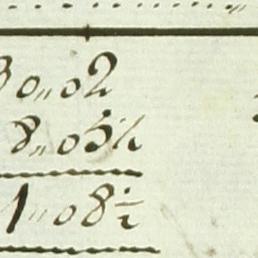 30„02
8„05½
1„08½